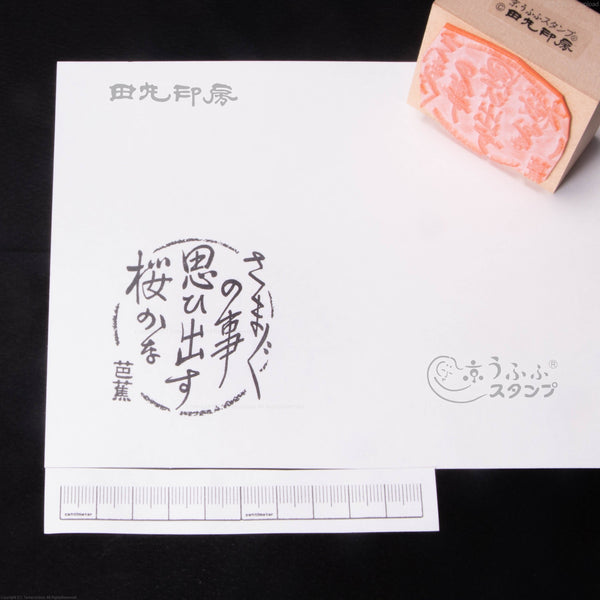 京うふふスタンプ®
©田丸印房
田丸印房
さま〲
の事
思ひ出す
桜かな
芭蕉
京うふふ®
スタンプ
centimeter
centimeter